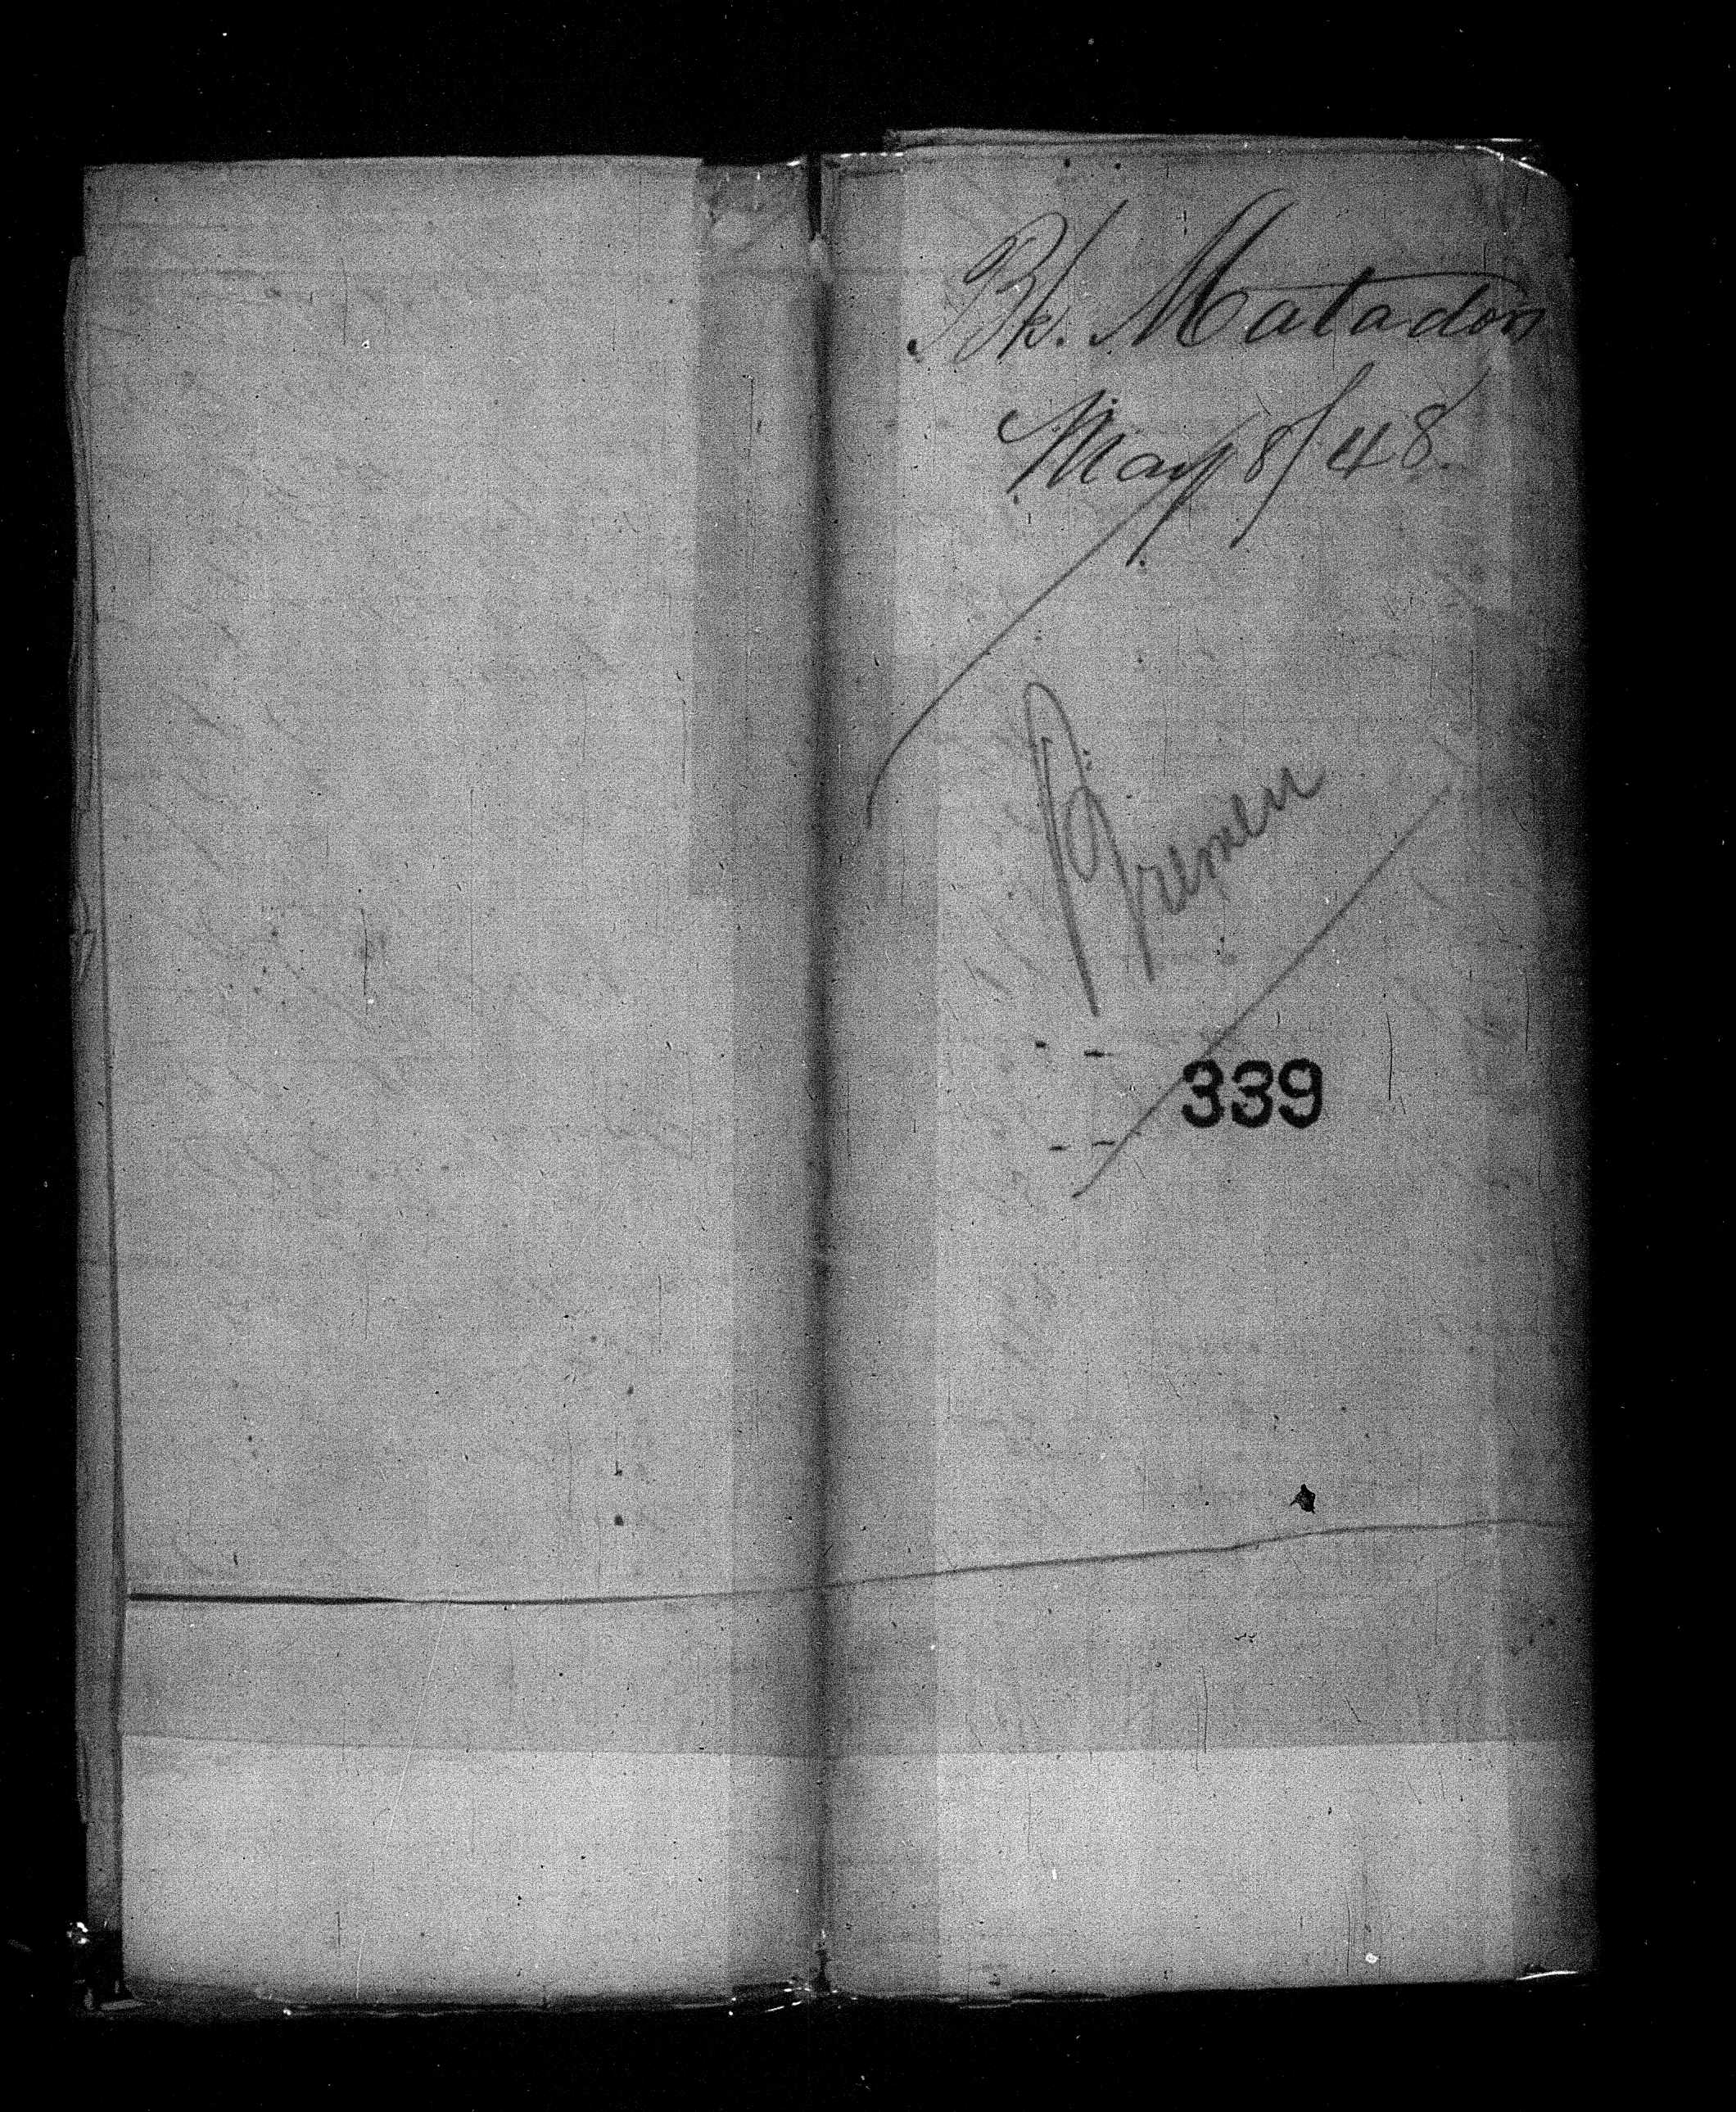 Bk. Matador
May 8/48
Bremen
339